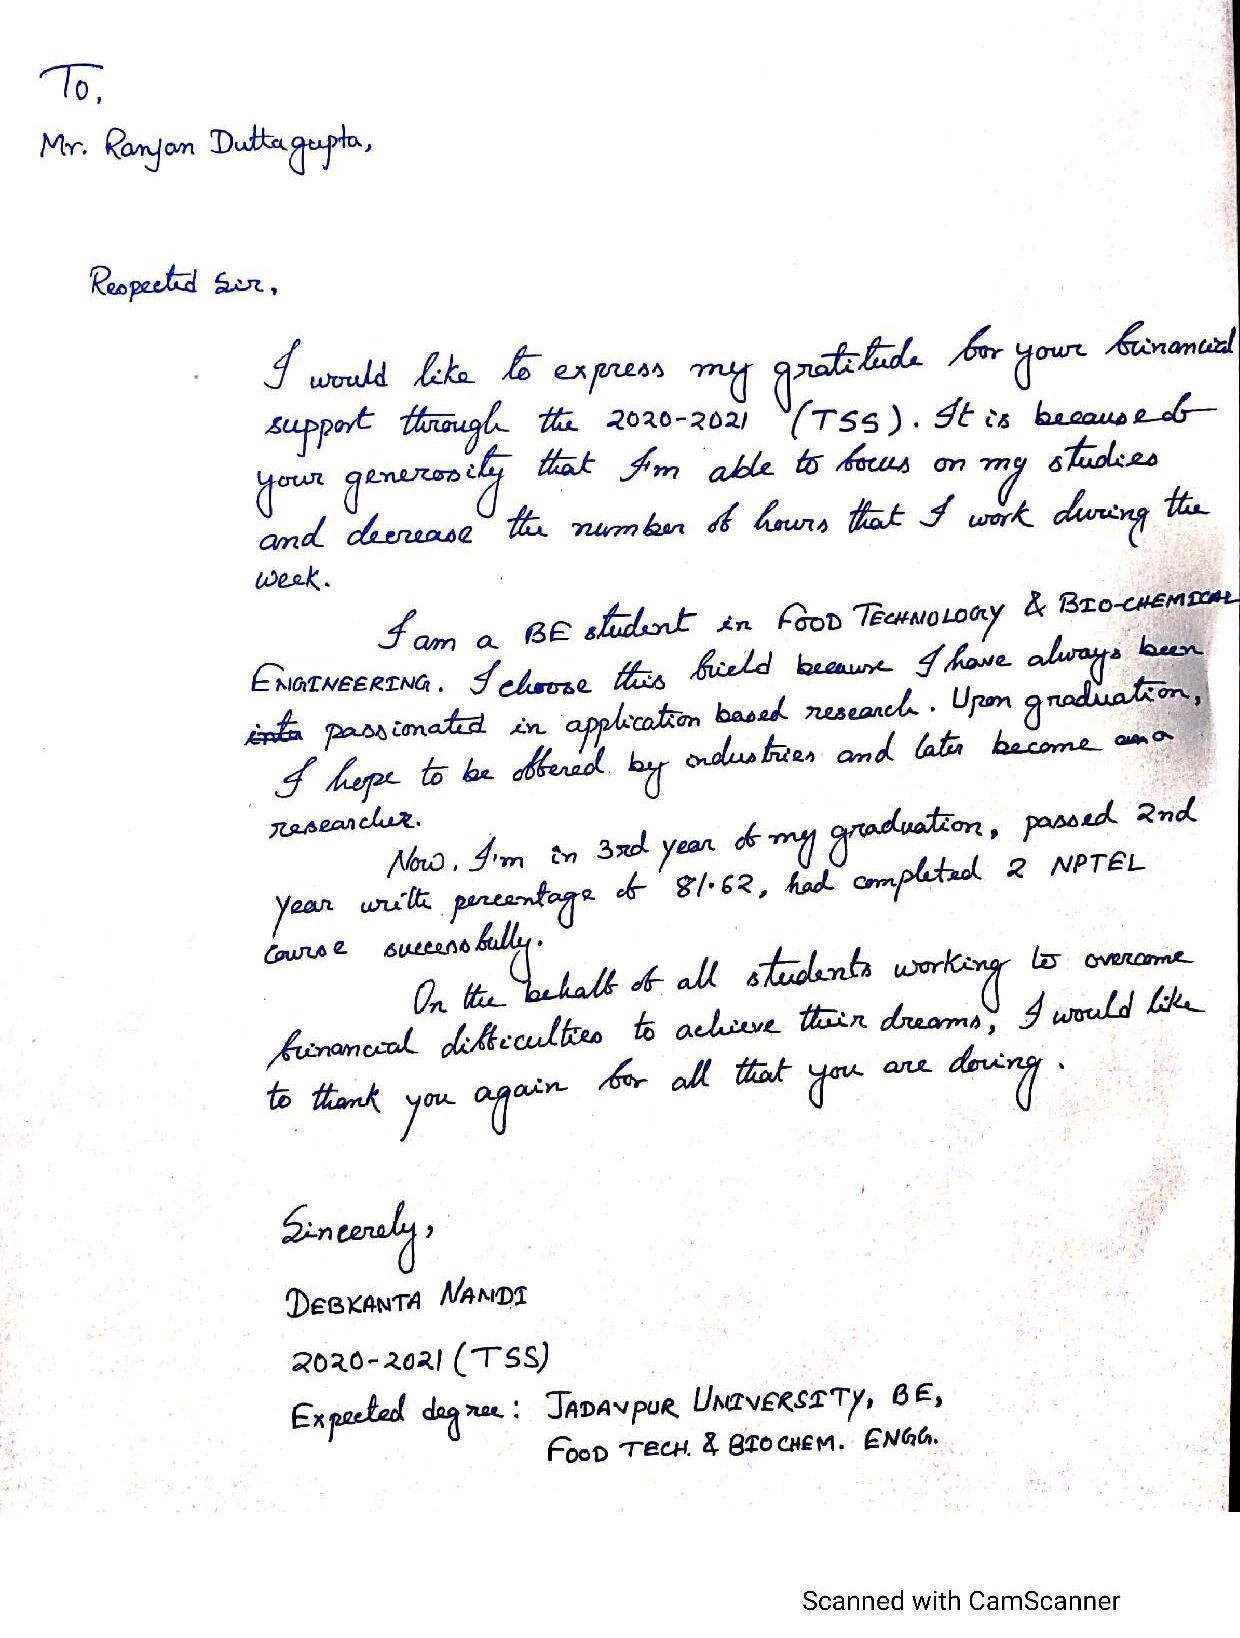 To,
Mr. Ranjan Duttagupta,
Respected Sir,
I would like to express my gratitude for your financial
support through the 2020-2021 (TSS). It is because of
your generosity that I'm able to focus on my studies
and decrease the number of hours that I work during the
week.
I am a BE student in FOOD TECHNOLOGY & BIO-CHEMICAL
ENGINEERING. I choose this field because I have always been
passionated in application based research. Upon graduation,
I hope to be offered by industries and later become a
researcher.
Now, I'm in 3rd year of my graduation, passed 2nd
year with percentage of 81.62, had completed 2 NPTEL
course successfully.
On the behalf of all students working to overcome
financial difficulties to achieve their dreams, I would like
to thank you again for all that you are doing.
Sincerely,
DEBKANTA NANDI
2020-2021 (TSS)
Expected degree: JADAVPUR UNIVERSITY, BE,
FOOD TECH. & BIOCHEM. ENGG.
Scanned with CamScanner